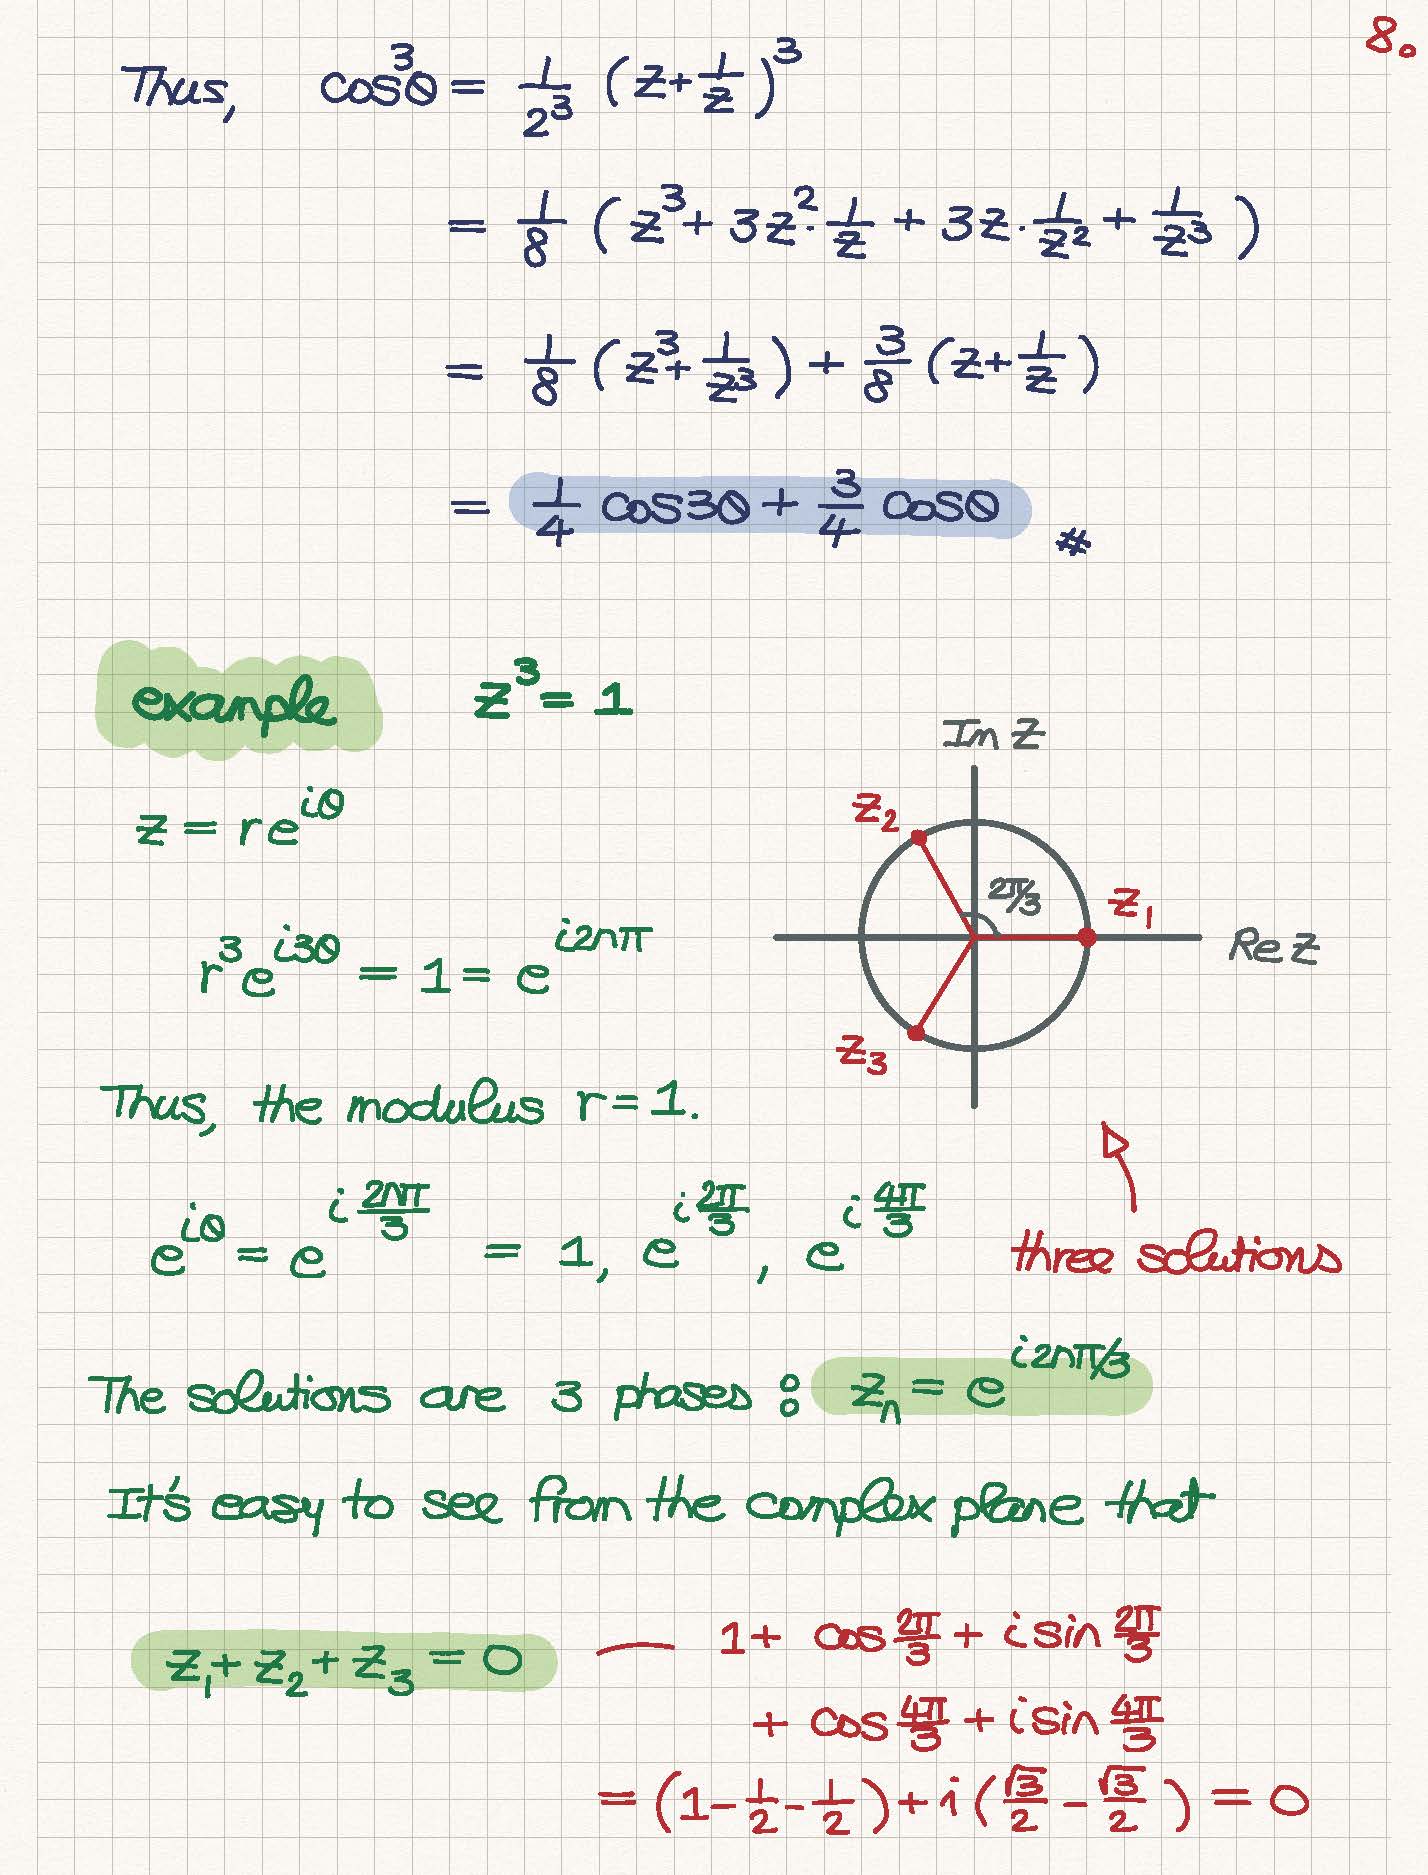 8.
Thus, cos³θ = 1/2³ (z + 1/z)³
= 1/8 (z³ + 3z²·1/z + 3z·1/z² + 1/z³)
= 1/8 (z³ + 1/z³) + 3/8 (z + 1/z)
= 1/4 cos3θ + 3/4 cosθ #
example z³ = 1
z = re^{iθ}
r³e^{i3θ} = 1 = e^{i2nπ}
Thus, the modulus r = 1.
e^{iθ} = e^{i 2nπ/3} = 1, e^{i 2π/3}, e^{i 4π/3}
Im z
z₂
2π/3
z₁
Re z
z₃
three solutions
The solutions are 3 phases : zₙ = e^{i2nπ/3}
It's easy to see from the complex plane that
z₁ + z₂ + z₃ = 0
1 + cos 2π/3 + i sin 2π/3
+ cos 4π/3 + i sin 4π/3
= (1 - 1/2 - 1/2) + i (√3/2 - √3/2) = 0